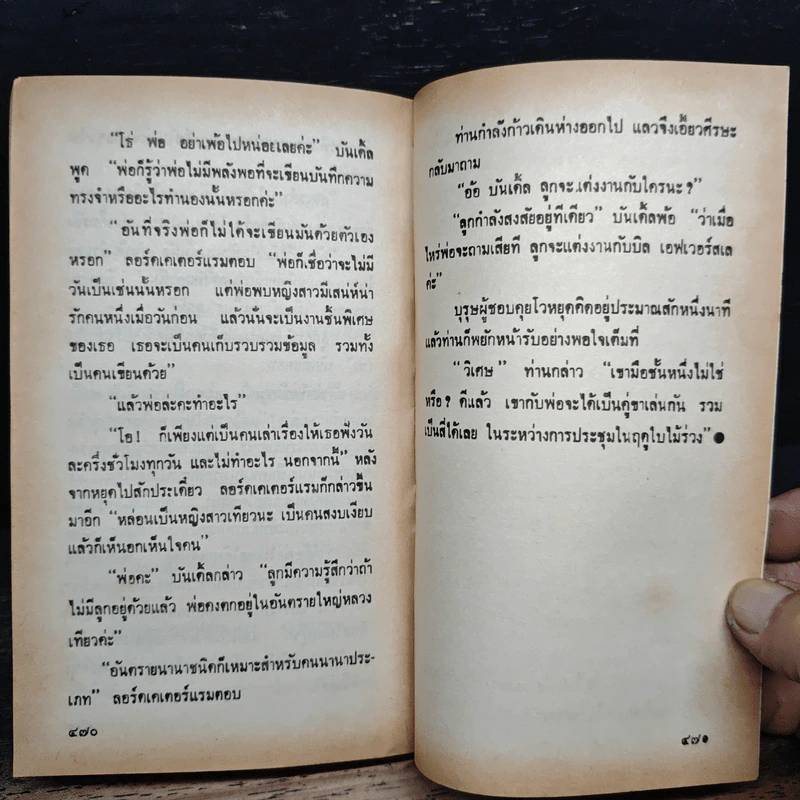 “โธ่ พ่อ อย่าเพ้อไปหน่อยเลยค่ะ” บันเดิ้ล
พูด “พ่อก็รู้ว่าพ่อไม่มีพลังพอที่จะเขียนบันทึกความ
ทรงจำหรืออะไรทำนองนั้นหรอกค่ะ”
“อันที่จริงพ่อก็ไม่ได้จะเขียนมันด้วยตัวเอง
หรอก” ลอร์ดเคเตอร์แรมตอบ “พ่อก็เชื่อว่าจะไม่มี
วันเป็นเช่นนั้นหรอก แต่พ่อพบหญิงสาวมีเสน่ห์น่า
รักคนหนึ่งเมื่อวันก่อน แล้วนั่นจะเป็นงานชิ้นพิเศษ
ของเธอ เธอจะเป็นคนเก็บรวบรวมข้อมูล รวมทั้ง
เป็นคนเขียนด้วย”
“แล้วพ่อล่ะคะทำอะไร”
“โอ! ก็เพียงแต่เป็นคนเล่าเรื่องให้เธอฟังวัน
ละครึ่งชั่วโมงทุกวัน และไม่ทำอะไร นอกจากนี้” หลัง
จากหยุดไปสักประเดี๋ยว ลอร์ดเคเตอร์แรมก็กล่าวขึ้น
มาอีก “หล่อนเป็นหญิงสาวเทียวนะ เป็นคนสงบเงียบ
แล้วก็เห็นอกเห็นใจคน”
“พ่อคะ” บันเดิ้ลกล่าว “ลูกมีความรู้สึกว่าถ้า
ไม่มีลูกอยู่ด้วยแล้ว พ่อคงตกอยู่ในอันตรายใหญ่หลวง
เทียวค่ะ”
“อันตรายนานาชนิดก็เหมาะสำหรับคนนานาประ-
เภท” ลอร์ดเคเตอร์แรมตอบ
๔๗๐
ท่านกำลังก้าวเดินห่างออกไป แล้วจึงเอี้ยวศีรษะ
กลับมาถาม
“อ้อ บันเดิ้ล ลูกจะแต่งงานกับใครนะ?”
“ลูกกำลังสงสัยอยู่ทีเดียว” บันเดิ้ลพ้อ “ว่าเมื่อ
ไหร่พ่อจะถามเสียที ลูกจะแต่งงานกับบิล เอฟเวอร์สเล
ค่ะ”
บุรุษผู้ชอบคุยโวหยุดคิดอยู่ประมาณสักหนึ่งนาที
แล้วท่านก็พยักหน้ารับอย่างพอใจเต็มที่
“วิเศษ” ท่านกล่าว “เขามือชั้นหนึ่งไม่ใช่
หรือ? ดีแล้ว เขากับพ่อจะได้เป็นคู่ขาเล่นกัน รวม
เป็นสี่ได้เลย ในระหว่างการประชุมในฤดูใบไม้ร่วง”●
๔๗๑